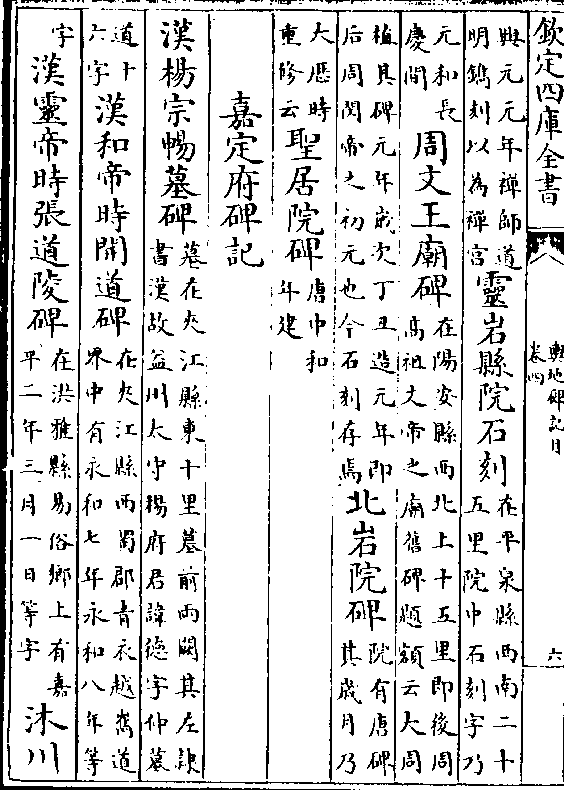 欽定四庫全書
輿地碑記目
卷四
六
興元元年禪師道
明鐫刻以為禪宫
靈岩縣院石刻
在平泉縣西南二十
五里院中石刻字乃
元和長
慶間
周文王廟碑
在陽安縣西北上十五里即後周
高祖文帝之廟舊碑題額云大周
植其碑元年歲次丁丑造元年即
后周閔帝之初元也今石刻存焉
北岩院碑
院有唐碑
其歲月乃
大厯時
重修云
聖居院碑
唐中和
年建
嘉定府碑記
漢楊宗暢墓碑
墓在夾江縣東十里墓前兩闕其左隸
書漢故益川太守楊府君諱德字仲墓
道十
六字
漢和帝時開道碑
在夾江縣西蜀郡青衣越嶲道
界中有永和七年永和八年等
字
漢靈帝時張道陵碑
在洪雅縣易俗鄉上有嘉
平二年三月一日等字
沐川